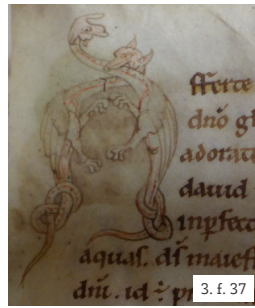 fferte
dño gl
adorate
dauid
inpfect
aquas. d̄s maieſt
dn̄i. id ÷ pr
3. f. 37